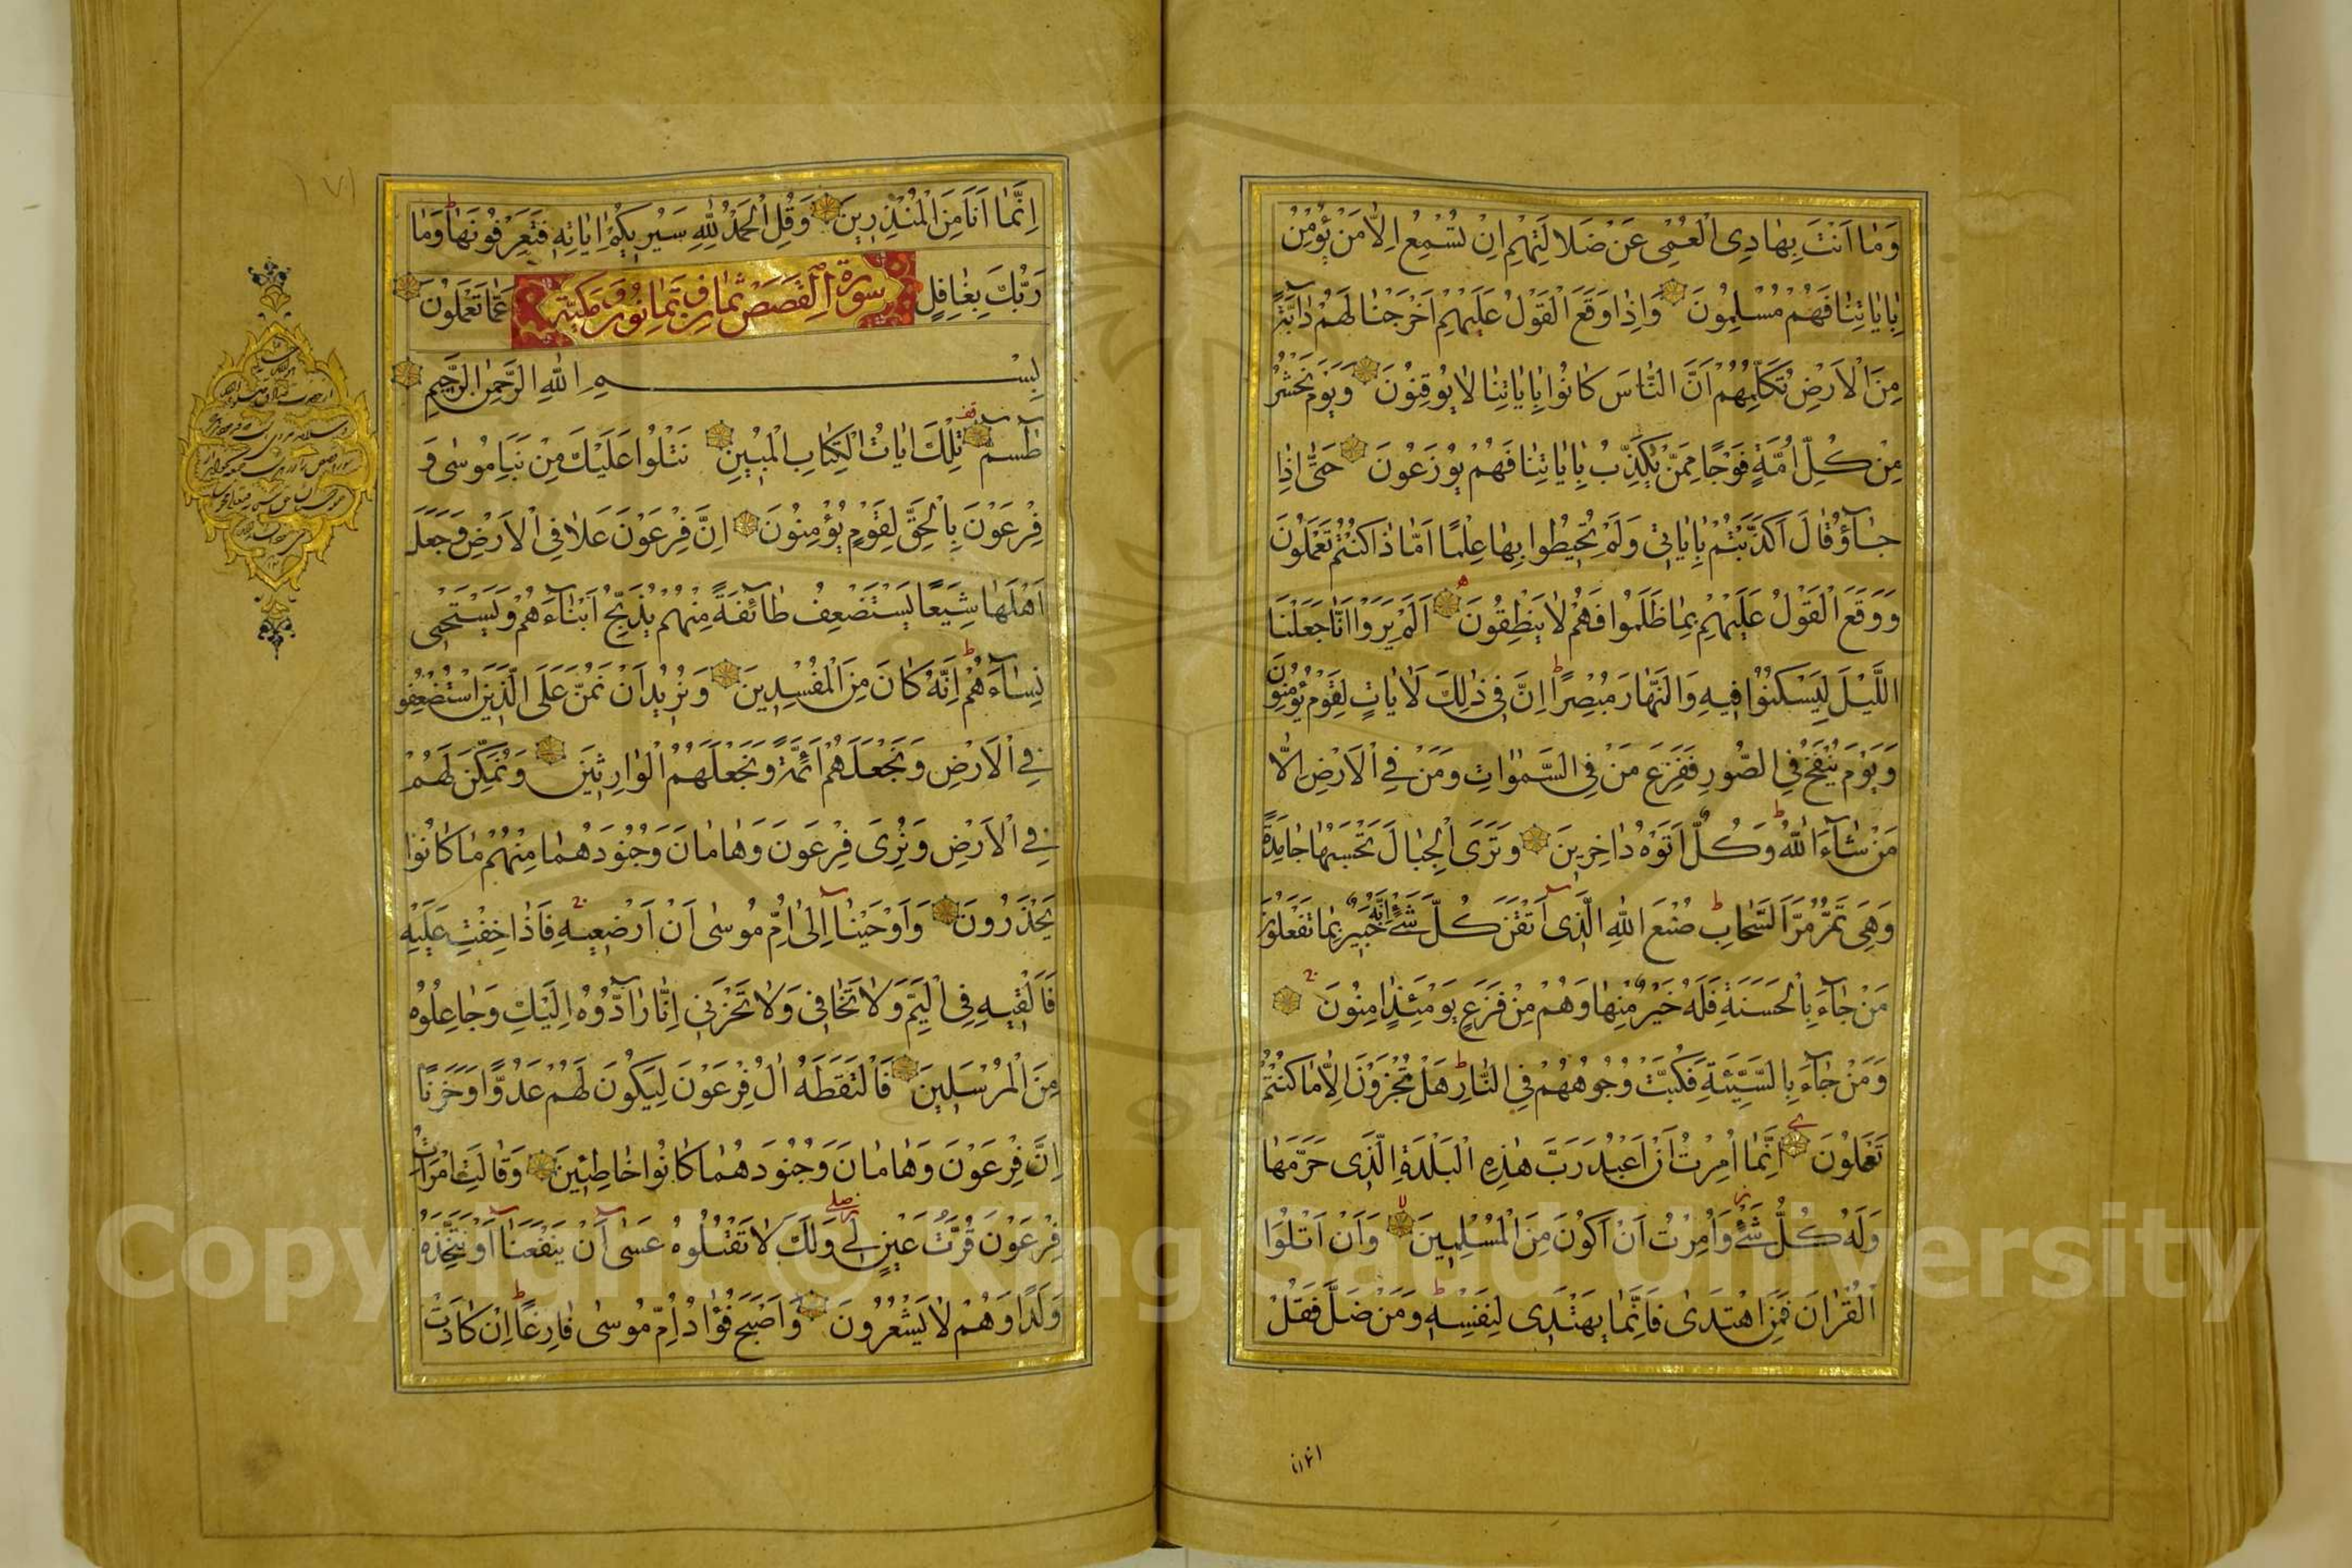 وَمٰا اَنْتَ بِهٰادِى الْعُمْىِ عَنْ ضَلالَتِهِمْ اِنْ تُسْمِعُ اِلّٰا مَنْ يُؤْمِنُ
بِاٰيٰاتِنٰا فَهُمْ مُسْلِمُونَ وَاِذٰا وَقَعَ الْقَوْلُ عَلَيْهِمْ اَخْرَجْنٰا لَهُمْ دٰابَّةً
مِنَ الْاَرْضِ تُكَلِّمُهُمْ اَنَّ النّٰاسَ كٰانُوا بِاٰيٰاتِنٰا لٰا يُوقِنُونَ وَيَوْمَ نَحْشُرُ
مِنْ كُلِّ اُمَّةٍ فَوْجًا مِمَّنْ يُكَذِّبُ بِاٰيٰاتِنٰا فَهُمْ يُوزَعُونَ حَتّٰى اِذٰا
جٰآؤُ قٰالَ اَكَذَّبْتُمْ بِاٰيٰاتِى وَلَمْ تُحِيطُوا بِهٰا عِلْمًا اَمّٰا ذٰا كُنْتُمْ تَعْمَلُونَ
وَوَقَعَ الْقَوْلُ عَلَيْهِمْ بِمٰا ظَلَمُوا فَهُمْ لٰا يَنْطِقُونَ اَلَمْ يَرَوْا اَنّٰا جَعَلْنَا
اللَّيْلَ لِيَسْكُنُوا فِيهِ وَالنَّهٰارَ مُبْصِرًا اِنَّ فِى ذٰلِكَ لَاٰيٰاتٍ لِقَوْمٍ يُؤْمِنُونَ
وَيَوْمَ يُنْفَخُ فِى الصُّورِ فَفَزِعَ مَنْ فِى السَّمٰوٰاتِ وَمَنْ فِى الْاَرْضِ اِلّٰا
مَنْ شٰآءَ اللّٰهُ وَكُلٌّ اَتَوْهُ دٰاخِرِينَ وَتَرَى الْجِبٰالَ تَحْسَبُهٰا جٰامِدَةً
وَهِىَ تَمُرُّ مَرَّ السَّحٰابِ صُنْعَ اللّٰهِ الَّذِى اَتْقَنَ كُلَّ شَىْءٍ اِنَّهُ خَبِيرٌ بِمٰا تَفْعَلُونَ
مَنْ جٰآءَ بِالْحَسَنَةِ فَلَهُ خَيْرٌ مِنْهٰا وَهُمْ مِنْ فَزَعٍ يَوْمَئِذٍ اٰمِنُونَ
وَمَنْ جٰآءَ بِالسَّيِّئَةِ فَكُبَّتْ وُجُوهُهُمْ فِى النّٰارِ هَلْ تُجْزَوْنَ اِلّٰا مٰا كُنْتُمْ
تَعْمَلُونَ اِنَّمٰا اُمِرْتُ اَنْ اَعْبُدَ رَبَّ هٰذِهِ الْبَلْدَةِ الَّذِى حَرَّمَهٰا
وَلَهُ كُلُّ شَىْءٍ وَاُمِرْتُ اَنْ اَكُونَ مِنَ الْمُسْلِمِينَ وَاَنْ اَتْلُوَا
الْقُرْاٰنَ فَمَنِ اهْتَدٰى فَاِنَّمٰا يَهْتَدِى لِنَفْسِهِ وَمَنْ ضَلَّ فَقُلْ
انما انا
اِنَّمٰا اَنَا مِنَ الْمُنْذِرِينَ وَقُلِ الْحَمْدُ لِلّٰهِ سَيُرِيكُمْ اٰيٰاتِهِ فَتَعْرِفُونَهٰا وَمٰا
رَبُّكَ بِغٰافِلٍ عَمّٰا تَعْمَلُونَ
سورة القصص ثمان وثمانون مكية
بِسْمِ اللّٰهِ الرَّحْمٰنِ الرَّحِيمِ
طٰسم تِلْكَ اٰيٰاتُ الْكِتٰابِ الْمُبِينِ نَتْلُوا عَلَيْكَ مِنْ نَبَاِ مُوسٰى وَ
فِرْعَوْنَ بِالْحَقِّ لِقَوْمٍ يُؤْمِنُونَ اِنَّ فِرْعَوْنَ عَلٰا فِى الْاَرْضِ وَجَعَلَ
اَهْلَهٰا شِيَعًا يَسْتَضْعِفُ طٰآئِفَةً مِنْهُمْ يُذَبِّحُ اَبْنٰآءَهُمْ وَيَسْتَحْيِى
نِسٰآءَهُمْ اِنَّهُ كٰانَ مِنَ الْمُفْسِدِينَ وَنُرِيدُ اَنْ نَمُنَّ عَلَى الَّذِينَ اسْتُضْعِفُو
فِى الْاَرْضِ وَنَجْعَلَهُمْ اَئِمَّةً وَنَجْعَلَهُمُ الْوٰارِثِينَ وَنُمَكِّنَ لَهُمْ
فِى الْاَرْضِ وَنُرِىَ فِرْعَوْنَ وَهٰامٰانَ وَجُنُودَهُمٰا مِنْهُمْ مٰا كٰانُوا
يَحْذَرُونَ وَاَوْحَيْنٰآ اِلٰى اُمِّ مُوسٰى اَنْ اَرْضِعِيهِ فَاِذٰا خِفْتِ عَلَيْهِ
فَاَلْقِيهِ فِى الْيَمِّ وَلٰا تَخٰافِى وَلٰا تَحْزَنِى اِنّٰا رٰآدُّوهُ اِلَيْكِ وَجٰاعِلُوهُ
مِنَ الْمُرْسَلِينَ فَالْتَقَطَهُ اٰلُ فِرْعَوْنَ لِيَكُونَ لَهُمْ عَدُوًّا وَحَزَنًا
اِنَّ فِرْعَوْنَ وَهٰامٰانَ وَجُنُودَهُمٰا كٰانُوا خٰاطِئِينَ وَقٰالَتِ امْرَاَتُ
فِرْعَوْنَ قُرَّتُ عَيْنٍ لِى وَلَكَ لٰا تَقْتُلُوهُ عَسٰى اَنْ يَنْفَعَنٰآ اَوْ نَتَّخِذَهُ
وَلَدًا وَهُمْ لٰا يَشْعُرُونَ وَاَصْبَحَ فُؤٰادُ اُمِّ مُوسٰى فٰارِغًا اِنْ كٰادَتْ
١٧١
Copyright © King Saud University